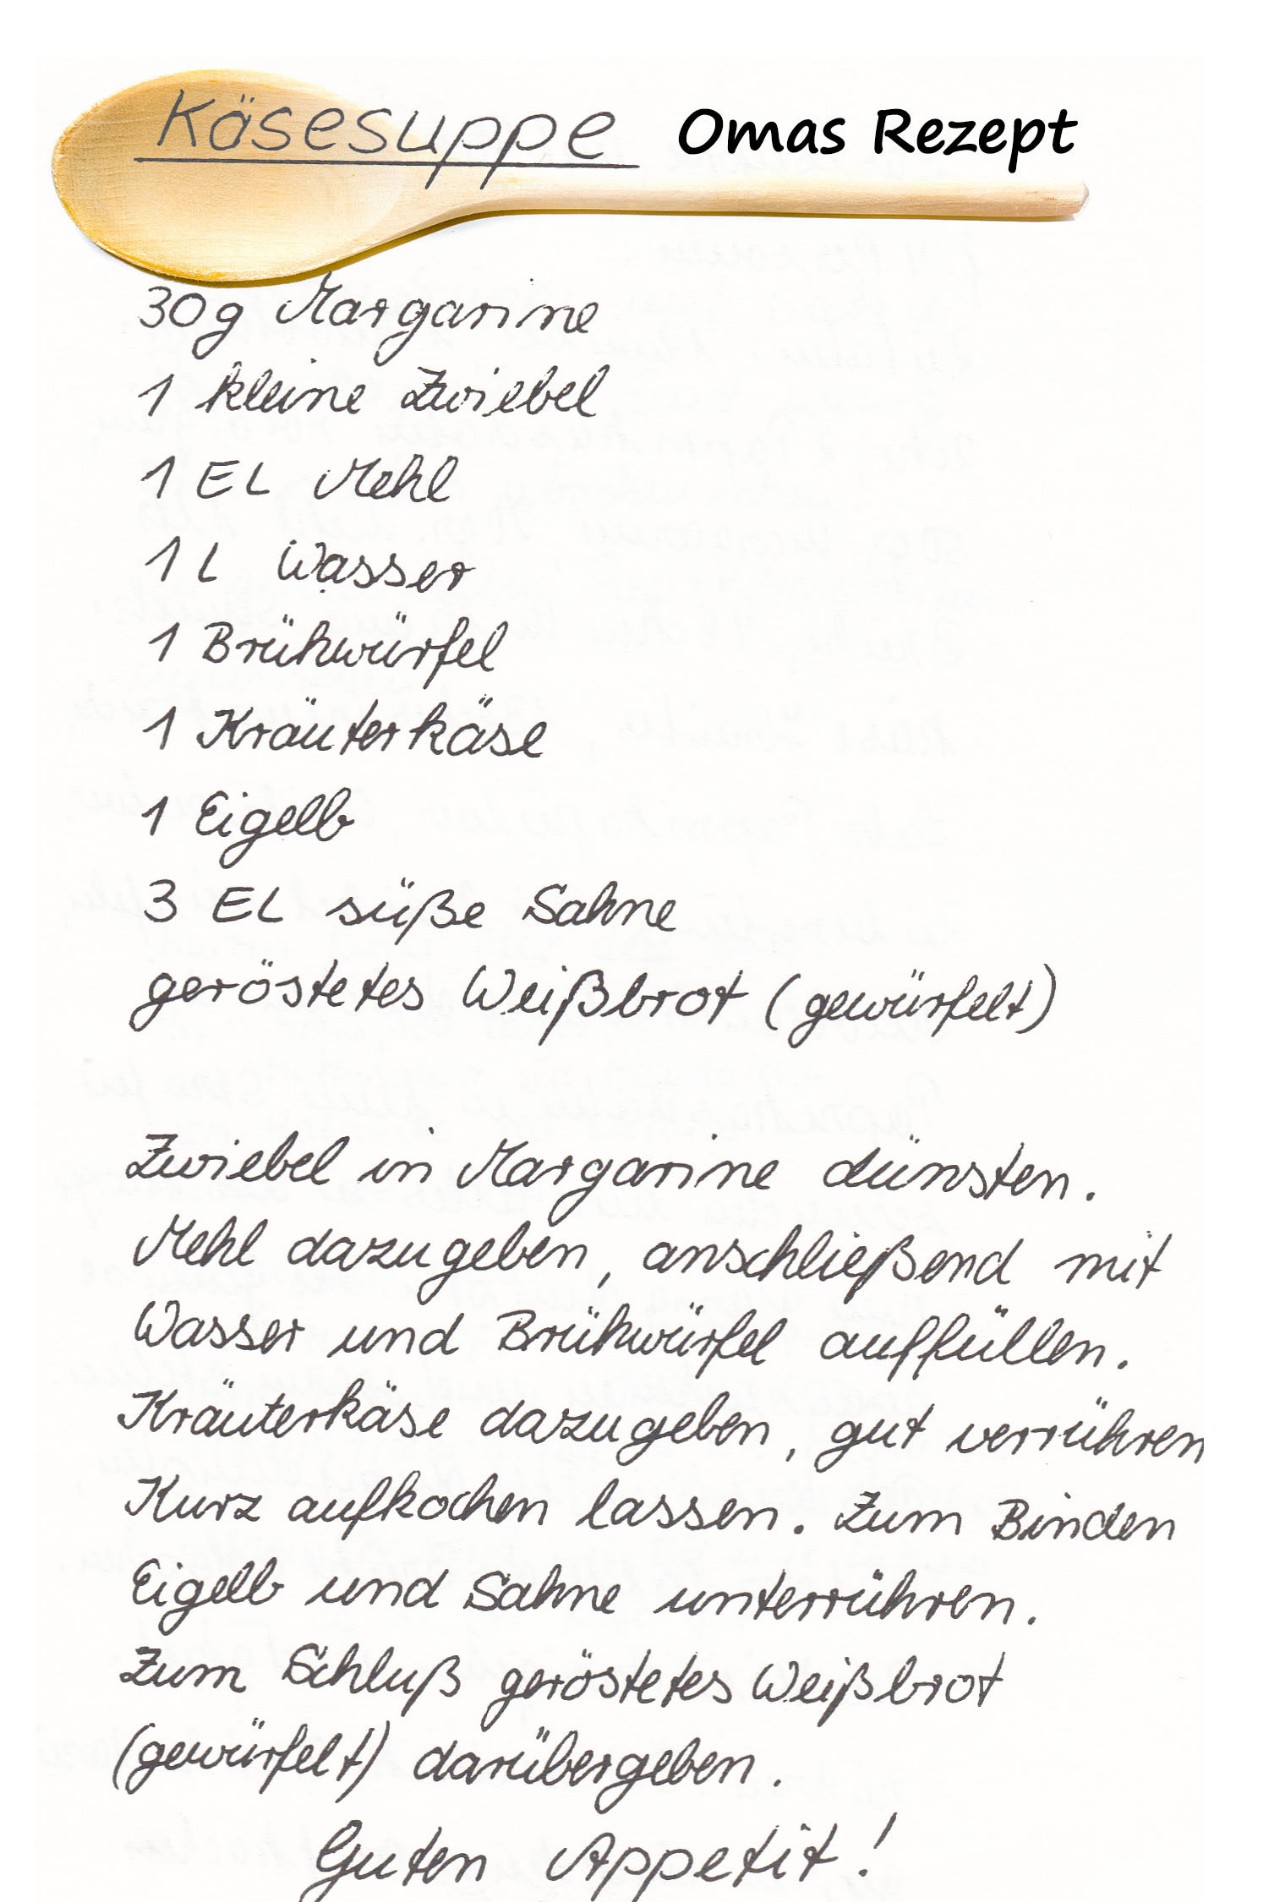 Käsesuppe Omas Rezept
30g Margarine
1 kleine Zwiebel
1 EL Mehl
1 L Wasser
1 Brühwürfel
1 Kräuterkäse
1 Eigelb
3 EL süße Sahne
geröstetes Weißbrot (gewürfelt)
Zwiebel in Margarine dünsten.
Mehl dazugeben, anschließend mit
Wasser und Brühwürfel auffüllen.
Kräuterkäse dazugeben, gut verrühren
Kurz aufkochen lassen. Zum Binden
Eigelb und Sahne unterrühren.
Zum Schluß geröstetes Weißbrot
(gewürfelt) darübergeben.
Guten Appetit!